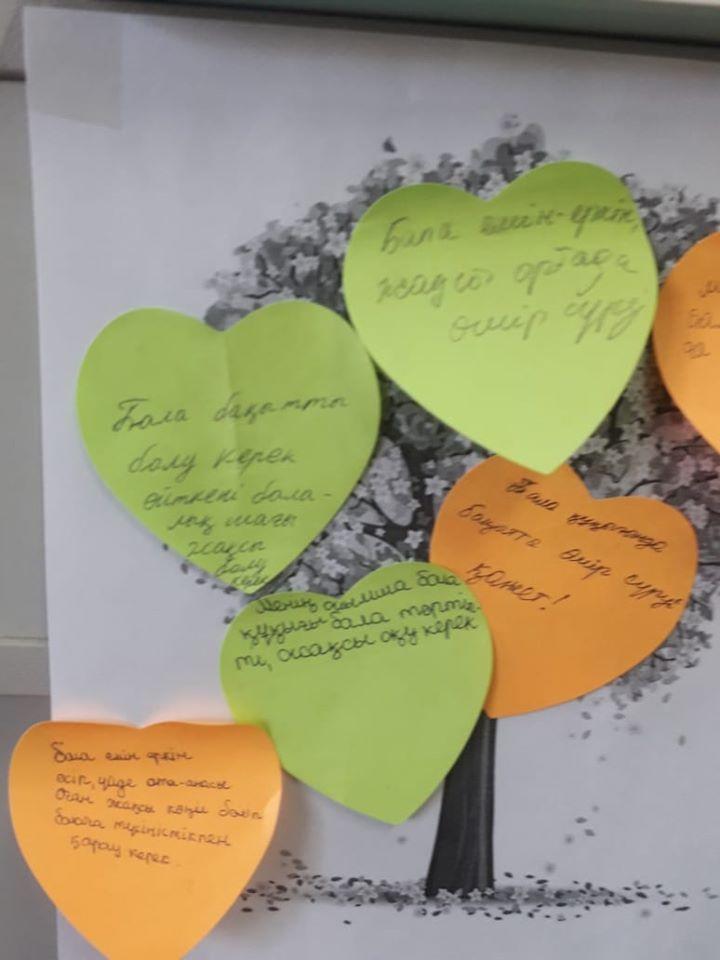 Бала емін-еркін,
жақсы ортада
өмір сүру
Бала бақытты
болу керек
өйткені бала-
лық шағы
жақсы
болу
керек
Бала құқығында
бақытта өмір сүруі
қажет!
Менің ойымша бала
құқығы бала тәртіп-
ті, жақсы оқу керек
Бала емін еркін
өсіп, үйде ата-анасы
оған жақсы көңіл бөліп
балаға түсіністікпен
қарау керек.